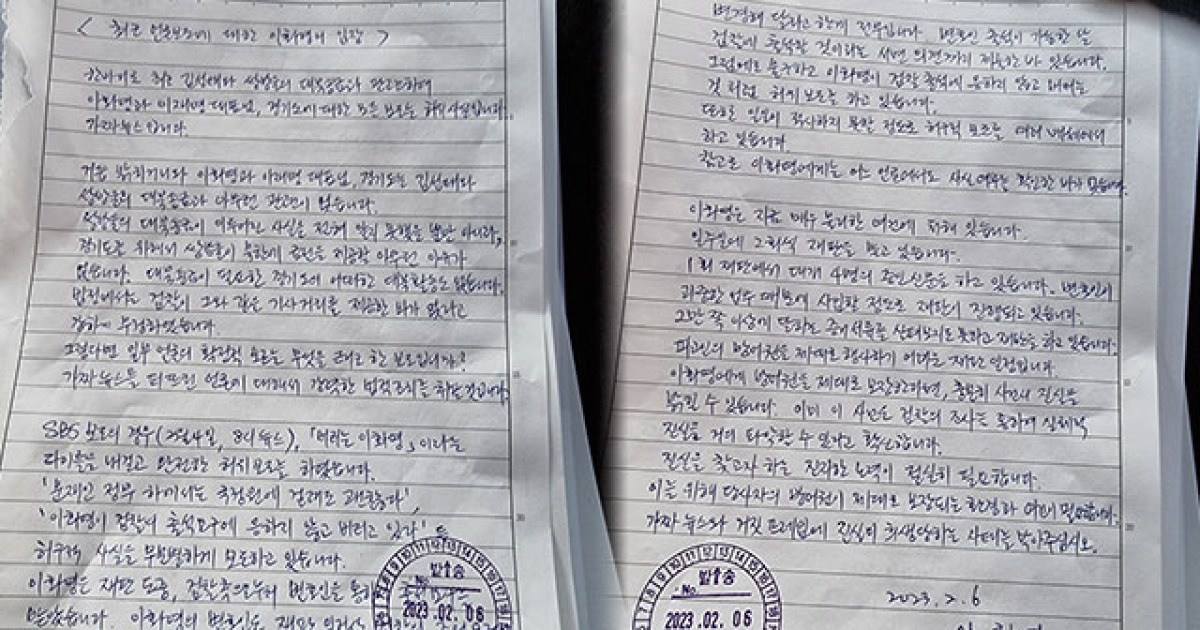 < 최근 언론보도에 대한 이화영의 입장 >
한마디로 최근 김성태와 쌍방울의 대북송금과 관련하여
이화영과 이재명 대표님, 경기도에 대한 모든 보도는 허위사실입니다.
가짜뉴스입니다.
거듭 밝히거니와 이화영과 이재명 대표님, 경기도는 김성태와
쌍방울의 대북송금과 아무런 관련이 없습니다.
쌍방울의 대북송금이 이루어진 사실을 전혀 알지 못했을 뿐만 아니라,
경기도를 위해서 쌍방울이 북한에 금전을 제공할 아무런 이유가
없습니다. 대북송금이 필요한 경기도에 어떠한 대북활동도 없습니다.
법정에서는 검찰이 그와 같은 기사거리를 제공한 바가 없다고
강하게 부정하였습니다.
그렇다면 일부 언론의 확정적 보도는 무엇을 근거로 한 보도입니까?
가짜뉴스를 퍼뜨린 언론에 대해서 강력한 법적조치를 취할 것입니다.
SBS 보도의 경우(2월4일, 8시 뉴스), 「버티는 이화영」이라는
타이틀을 내걸고 완전한 허위보도를 하였습니다.
'문재인 정부 하에서는 국정원에 걸려도 괜찮다',
'이화영이 검찰의 출석요구에 응하지 않고 버티고 있다' 등
허구적 사실을 무분별하게 보도하고 있습니다.
이화영은 재판 도중, 검찰측으로부터 변호인을 통해
받았습니다. 이화영의 변호인은 재판
발송
No
2023.02.06
변경해 달라고 한게 전부입니다. 변호인 출석이 가능한 날
검찰에 출석할 것이라는 서면 의견까지 제출한 바 있습니다.
그럼에도 불구하고 이화영이 검찰 출석에 응하지 않고 버티는
것처럼 허위보도를 하고 있습니다.
때로는 일일이 적시하지 못할 정도로 허구적 보도를 여러 매체에서
하고 있습니다.
참고로 이화영에게는 어느 언론에서도 사실여부를 확인한 바가 없습니다.
이화영은 지금 매우 불리한 여건에 처해 있습니다.
일주일에 2회씩 재판을 받고 있습니다.
1회 재판에서 대개 4명의 증인신문을 하고 있습니다. 변호인이
과중한 업무 때문에 사임할 정도로 재판이 진행되고 있습니다.
그만 쪽 이상에 달하는 증거서류를 살펴보지도 못하고 재판을 하고 있습니다.
피고인의 방어권을 제대로 행사하기 어려운 재판 일정입니다.
이화영에게 방어권을 제대로 보장한다면, 충분히 사건의 진실을
밝힐 수 있습니다. 이미 이 사건은 검찰의 조사를 통하여 실체적
진실을 거의 파악할 수 있다고 확신합니다.
진실을 찾고자 하는 진지한 노력이 절실히 필요합니다.
이를 위해 당사자의 방어권이 제대로 보장되는 환경과 여건이 필요합니다.
가짜 뉴스와 거짓 프레임에 진실이 희생당하는 사태를 막아주십시오.
2023. 2. 6
발송
No
2023.02.06